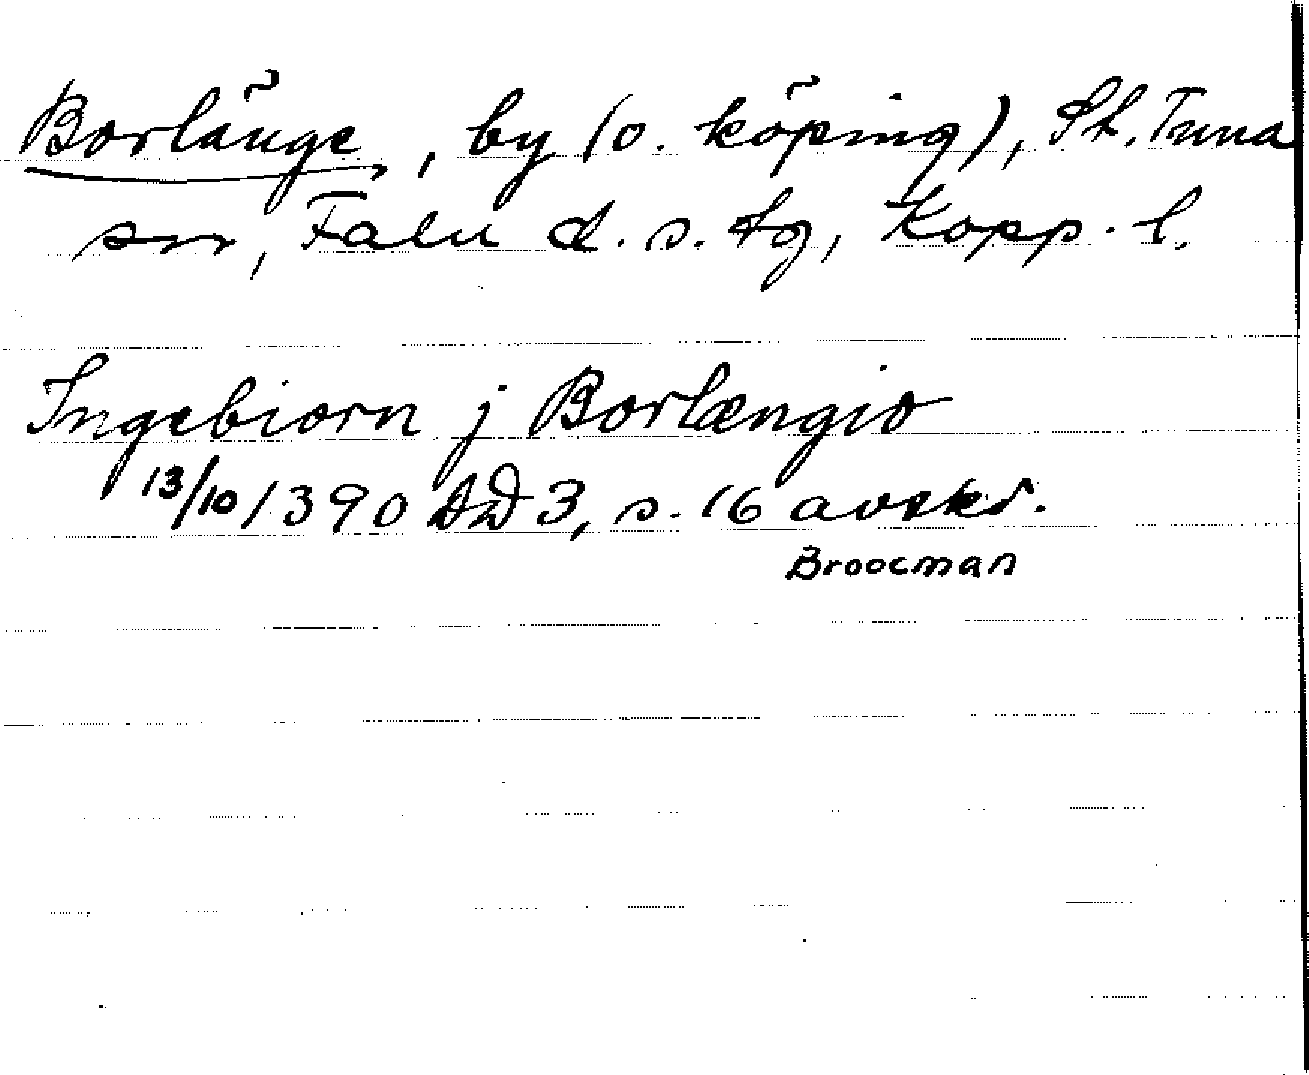 Borlänge, by (o. köping), St. Tuna
sn, Falu d. s. tg, Kopp. l.
Ingebiorn j Borlængio
13/10 1390 DD 3, s. 16 avskr.
Broocman